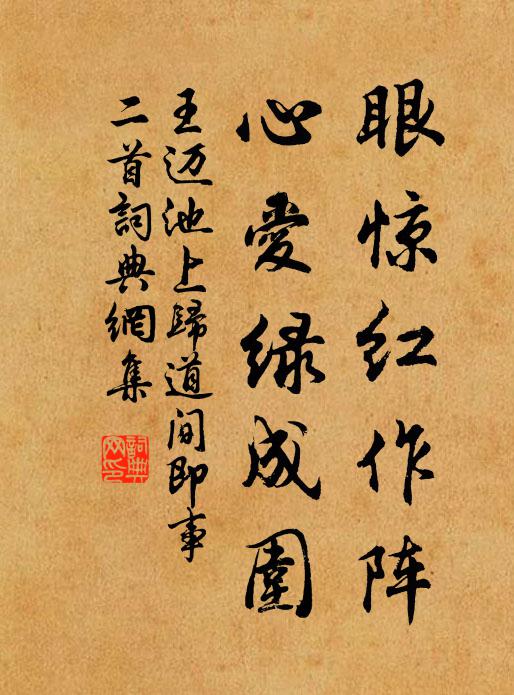 眼惊红作阵
心爱绿成围
王迈池上归道间即事
二首词典网集
词典网印